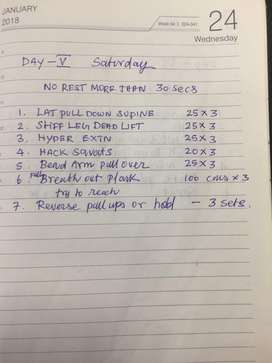 JANUARY
2018
Week 04 | 024-341
24
Wednesday
DAY - V Saturday
NO REST MORE THEN 30 secs
1. LAT PULL DOWN SUPINE 25 x 3
2. STIFF LEG DEAD LIFT 25 x 3
3. HYPER EXTN 25 x 3
4. HACK SQUATS 20 x 3
5 Bend Arm pull over 25 x 3
6 Full Breath out plank 100 cnts x 3
try to reach
7 Reverse pull ups or hold - 3 sets.